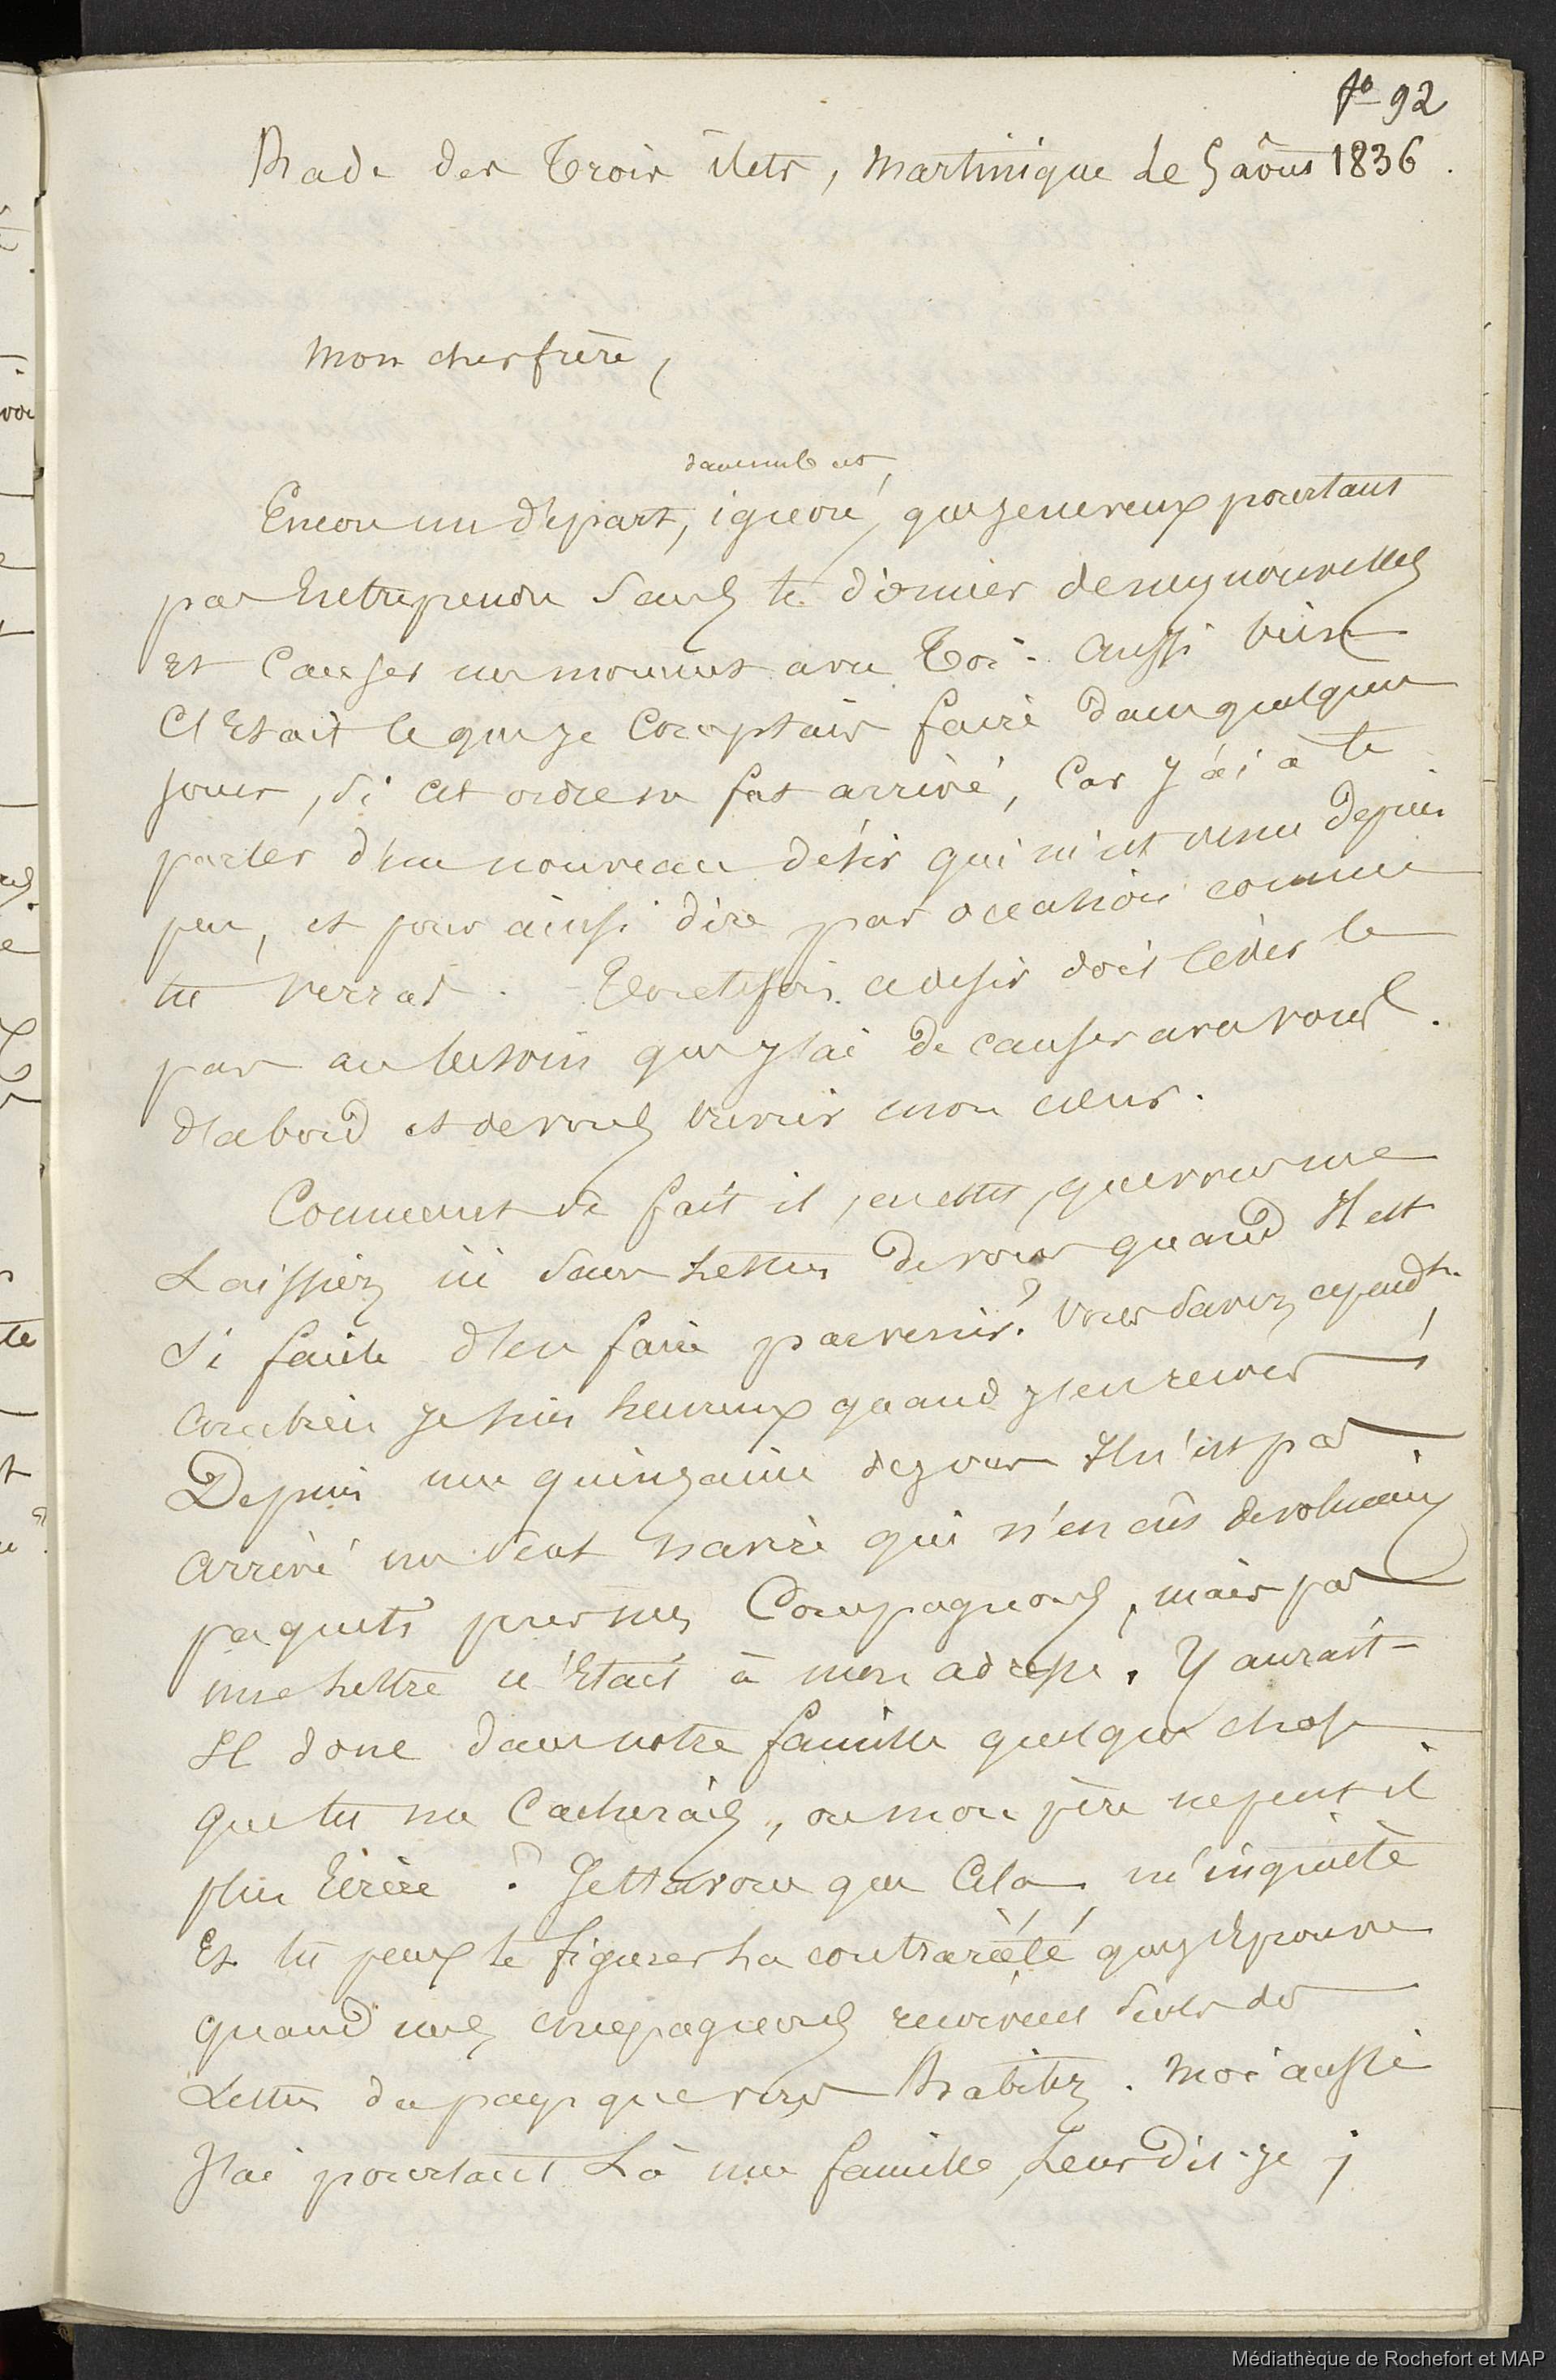 fo 92
Rade des Trois ilets, Martinique Le 5 aôut 1836.
Mon cher frère,
dans mon but,
Encore un départ, ignoré, que je ne veux pourtant
pas Entreprendre sans te donner de mes nouvelles
Et Causer un moment avec Toi. Aussi bien
C'Etait ce que je Comptais faire dans quelques
jours, si cet ordre ne fut arrivé, Car j'ai à te
parler d'un nouveau désir qui m'est venu depuis
peu, et pour ainsi dire par occasion comme
tu verras. Toutefois ce désir doit Céder le
pas au besoin que j'ai de causer avec vous
d'abord et de vous ouvrir mon cœur.
Comment se fait il, en effet, que vous me
Laissiez ici sans Lettres de vous quand Il est
si facile d'en faire parvenir? Vous savez cependt.
Combien je suis heureux quand j'en reçois!
Depuis une quinzaine de jours Il n'est pas
arrivé un seul navire qui n'en eût de volumineux
paquets pour mes Compagnons, mais pas
une Lettre n'Etait à mon adresse. Y aurait-
Il donc dans notre famille quelque chose
que tu me Cacherais, ou mon père ne peut il
plus Ecrire? Je t'avoue que Cela m'inquiète
Et tu peux te figurer La contrariété que j'Eprouve
quand mes compagnons reçoivent seuls des
Lettres du pays que vous habitez. Moi aussi
J'ai pourtant Là une famille, Leur dis-je;
Médiathèque de Rochefort et MAP